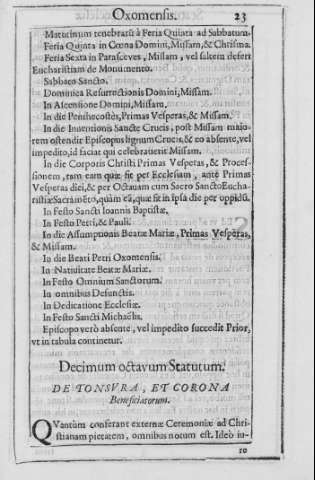 Oxomensis. 23
Matutinum tenebrarũ à Feria Quarta ad Sabbatum.
Feria Quinta in Cœna Domini, Missam, & Chrisma.
Feria Sexta in Parasceves, Missam, vel saltem defert
Eucharistiam de Monumento.
Sabbato Sancto.
Dominica Resurrectionis Domini, Missam.
In Ascensione Domini, Missam.
In die Penthecostes, Primas Vesperas, & Missam.
In die Inventionis Sanctæ Crucis, post Missam maio-
rem ostendit Episcopus lignum Crucis, & eo absente, vel
impedito, id faciat qui celebraverit Missam.
In die Corporis Christi Primas Vesperas, & Proces-
sionem, tam eam quæ fit per Ecclesiam, ante Primas
Vesperas diei, & per Octavam cum Sacro Sancto Eucha-
ristiæ Sacramẽto, quàm eã, quæ fit in ipsa die per oppidũ.
In Festo Sancti Ioannis Baptistæ.
In Festo Petri, & Pauli.
In die Assumptionis Beatæ Mariæ, Primas Vesperas,
& Missam.
In die Beati Petri Oxomensis.
In Nativitate Beatæ Mariæ.
In Festo Omnium Sanctorum.
In omnibus Defunctis.
In Dedicatione Ecclesiæ.
In Festo Sancti Michaelis.
Episcopo verò absente, vel impedito succedit Prior,
vt in tabula continetur.
Decimum octavum Statutum.
DE TONSVRA, ET CORONA
Beneficiatorum.
QVantùm conferant externæ Ceremoniæ ad Chri-
stianam pietatem, omnibus notum est. Ideò iu-
10